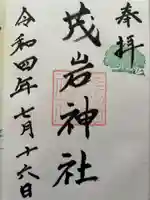 奉拝
茂岩神社
令和四年七月十六日